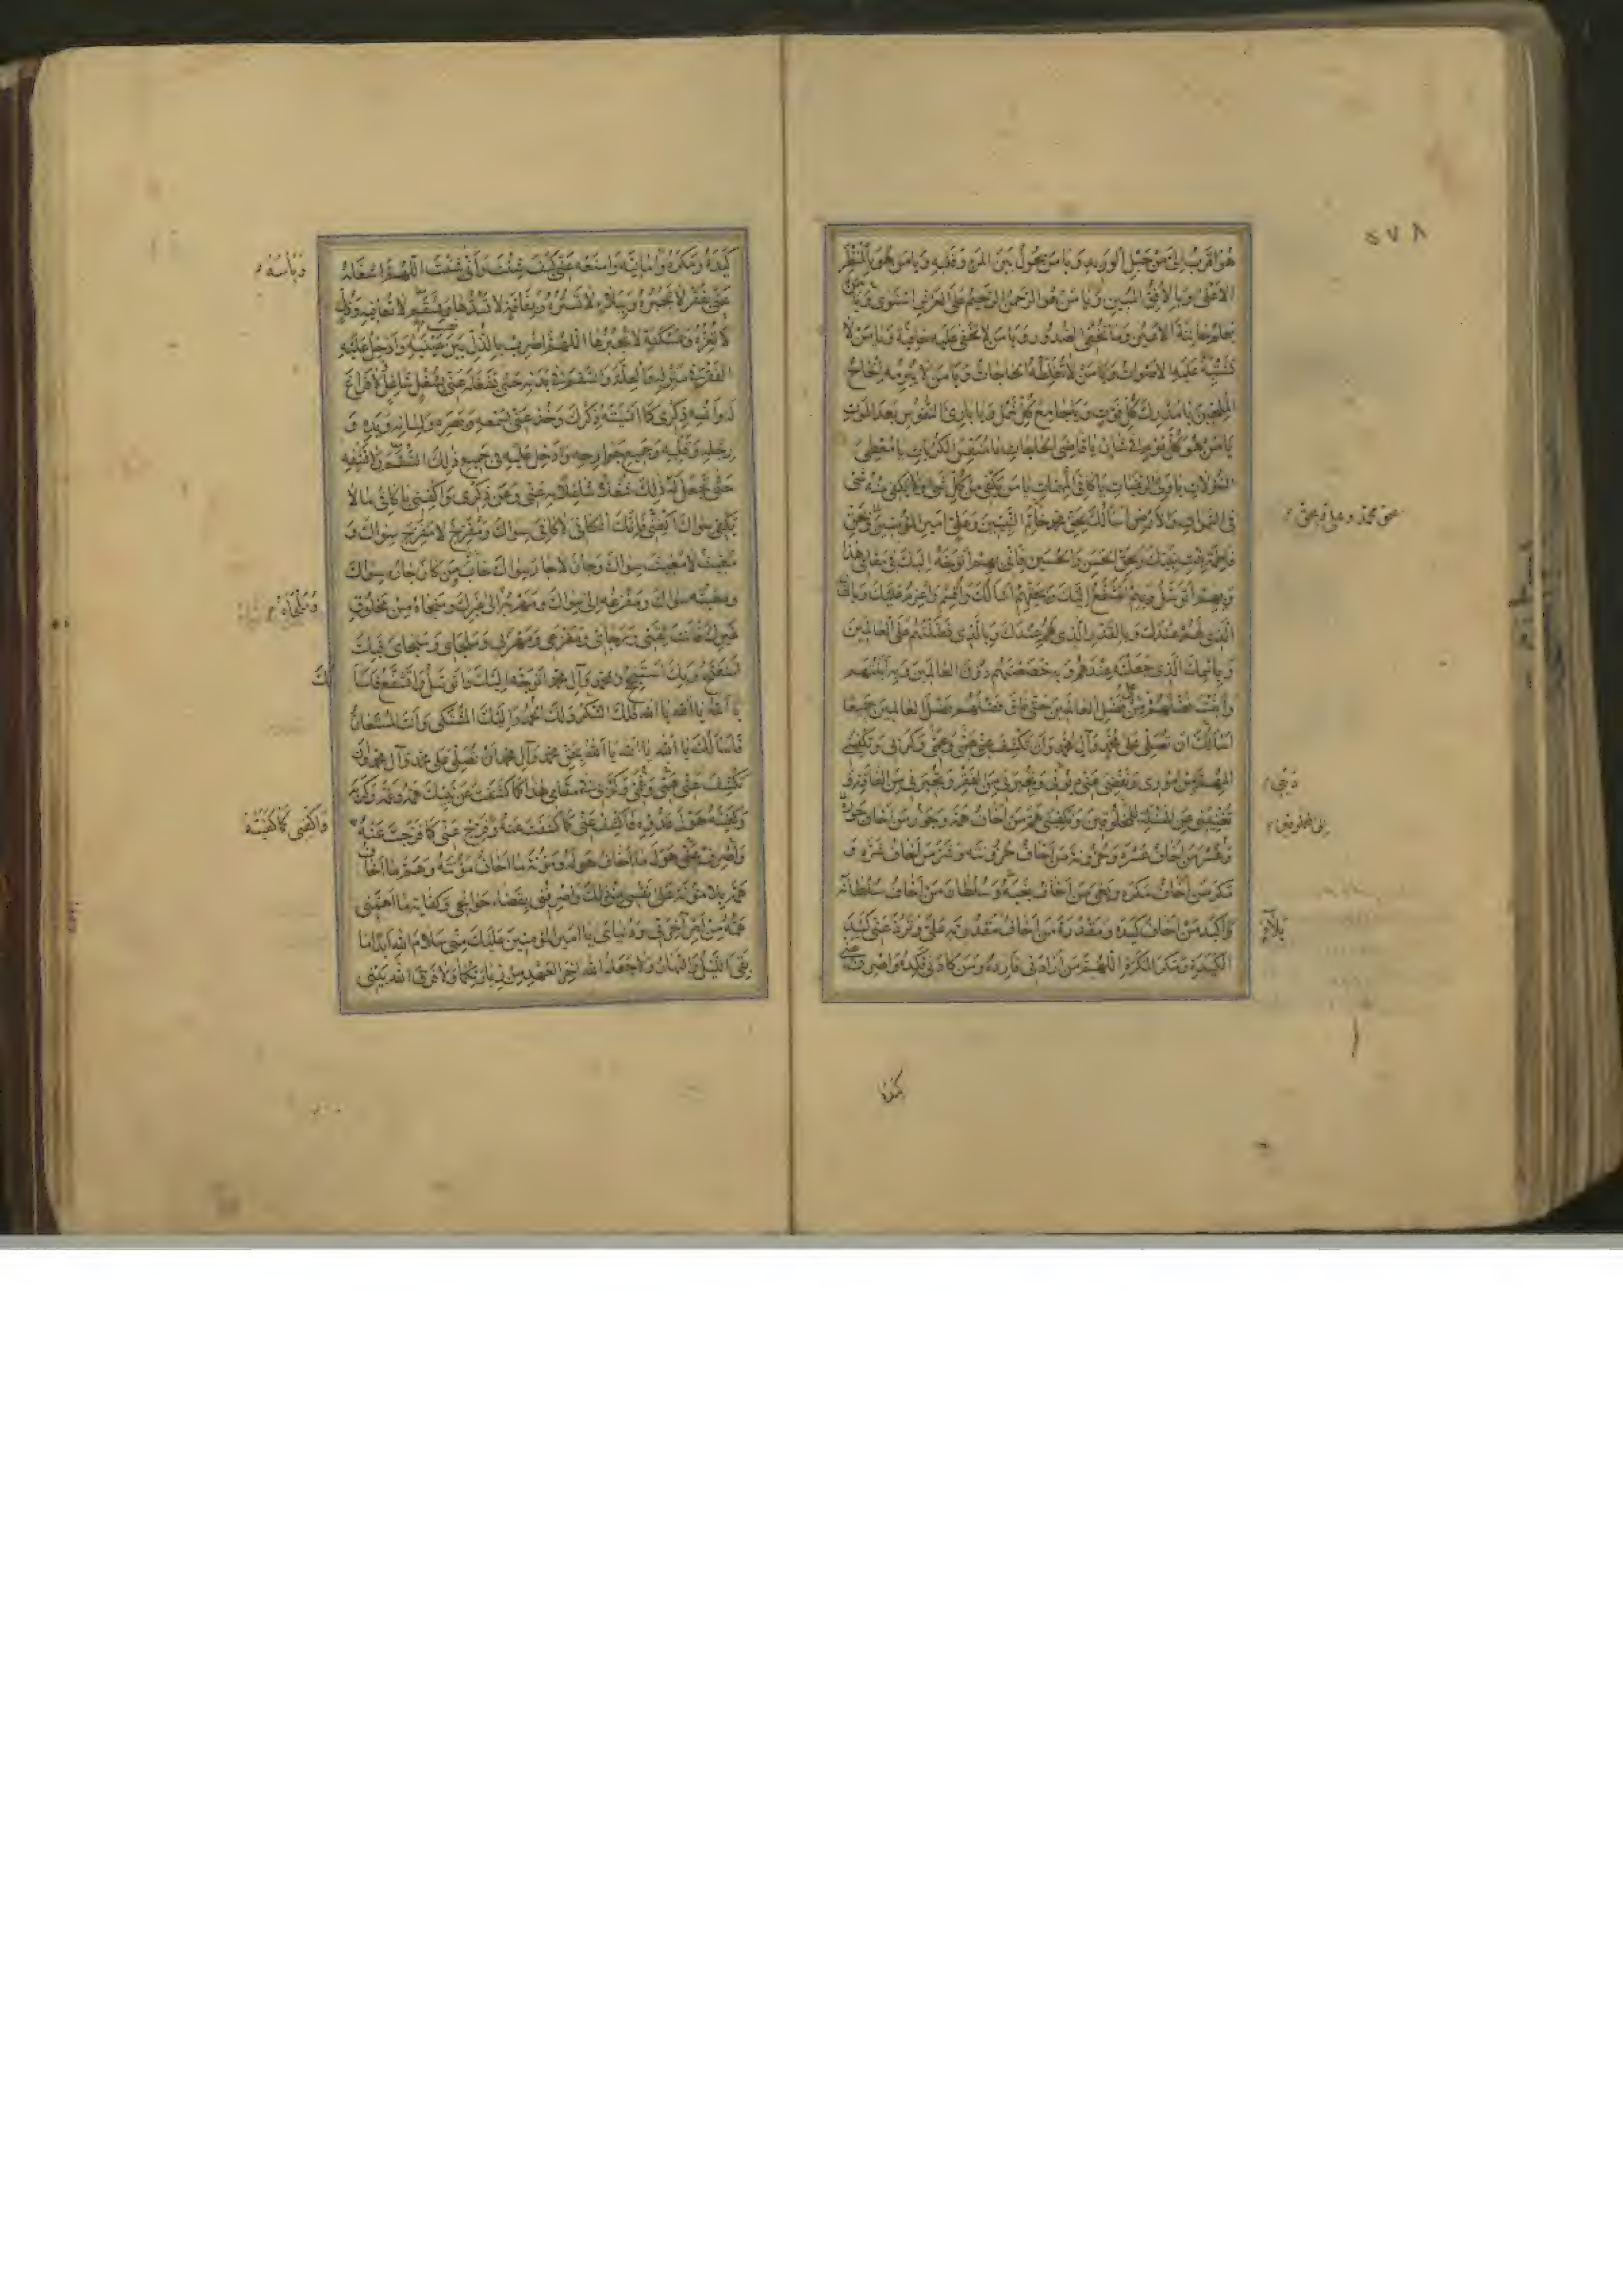 ٥٧٨
هُوَ اَقْرَبُ اِلَىَّ مِنْ حَبْلِ الْوَرِيدِ وَيا مَنْ يَحُولُ بَيْنَ الْمَرْءِ وَقَلْبِهِ وَيا مَنْ هُوَ بِالْمَنْظَرِ
الْاَعْلىٰ وَبِالْاُفُقِ الْمُبِينِ وَيا مَنْ هُوَ الرَّحْمٰنُ الرَّحِيمُ عَلَى الْعَرْشِ اسْتَوىٰ وَيا مَنْ
يَعْلَمُ خائِنَةَ الْاَعْيُنِ وَما تُخْفِى الصُّدُورُ وَيا مَنْ لا تَخْفىٰ عَلَيْهِ خافِيَةٌ وَيا مَنْ لا
تَشْتَبِهُ عَلَيْهِ الْاَصْواتُ وَيا مَنْ لا تُغَلِّطُهُ الْحاجاتُ وَيا مَنْ لا يُبْرِمُهُ اِلْحاحُ
الْمُلِحِّينَ يا مُدْرِكَ كُلِّ فَوْتٍ وَيا جامِعَ كُلِّ شَمْلٍ وَيا بارِئَ النُّفُوسِ بَعْدَ الْمَوْتِ
يا مَنْ هُوَ كُلَّ يَوْمٍ فى شَأْنٍ يا قاضِىَ الْحاجاتِ يا مُنَفِّسَ الْكُرُباتِ يا مُعْطِىَ
السُّؤُلاتِ يا وَلِىَّ الرَّغَباتِ يا كافِىَ الْمُهِمّاتِ يا مَنْ يَكْفى مِنْ كُلِّ شَىْءٍ وَلا يَكْفى مِنْهُ شَىْءٌ
فِى السَّمٰواتِ وَالْاَرْضِ اَسْأَلُكَ بِحَقِّ مُحَمَّدٍ خاتَمِ النَّبِيّينَ وَعَلِىٍّ اَمِيرِ الْمُؤْمِنِينَ وَبِحَقِّ
بحق محمد وعلى وبحق
فاطِمَةَ بِنْتِ نَبِيِّكَ وَبِحَقِّ الْحَسَنِ وَالْحُسَيْنِ فَاِنّى بِهِمْ اَتَوَجَّهُ اِلَيْكَ فى مَقامى هٰذا
وَبِهِمْ اَتَوَسَّلُ وَبِهِمْ اَتَشَفَّعُ اِلَيْكَ وَبِحَقِّهِمْ اَسْأَلُكَ وَاُقْسِمُ وَاَعْزِمُ عَلَيْكَ وَبِالشَّأْنِ
الَّذى لَهُمْ عِنْدَكَ وَبِالْقَدْرِ الَّذى لَهُمْ عِنْدَكَ وَبِالَّذى فَضَّلْتَهُمْ عَلَى الْعالَمِينَ
وَبِاسْمِكَ الَّذى جَعَلْتَهُ عِنْدَهُمْ وَبِهِ خَصَصْتَهُمْ دُونَ الْعالَمِينَ وَبِهِ اَبَنْتَهُمْ
وَاَبَنْتَ فَضْلَهُمْ مِنْ فَضْلِ الْعالَمِينَ حَتّىٰ فاقَ فَضْلُهُمْ فَضْلَ الْعالَمِينَ جَمِيعًا
اَسْأَلُكَ اَنْ تُصَلِّىَ عَلىٰ مُحَمَّدٍ وَآلِ مُحَمَّدٍ وَاَنْ تَكْشِفَ عَنّى غَمّى وَهَمّى وَكَرْبى وَتَكْفِيَنِى
الْمُهِمَّ مِنْ اُمُورى وَتَقْضِىَ عَنّى دَيْنى وَتُجِيرَنى مِنَ الْفَقْرِ وَتُجِيرَنى مِنَ الْفاقَةِ وَ
دَيْنى
تُغْنِيَنى عَنِ الْمَسْئَلَةِ لِلْمَخْلُوقِينَ وَتَكْفِيَنى هَمَّ مَنْ اَخافُ هَمَّهُ وَجَوْرَ مَنْ اَخافُ جَوْرَهُ
اِلَى المَخلوقين
وَعُسْرَ مَنْ اَخافُ عُسْرَهُ وَحُزُونَةَ مَنْ اَخافُ حُزُونَتَهُ وَشَرَّ مَنْ اَخافُ شَرَّهُ وَ
مَكْرَ مَنْ اَخافُ مَكْرَهُ وَبَغْىَ مَنْ اَخافُ بَغْيَهُ وَسُلْطانَ مَنْ اَخافُ سُلْطانَهُ
وَكَيْدَ مَنْ اَخافُ كَيْدَهُ وَمَقْدُرَةَ مَنْ اَخافُ مَقْدُرَتَهُ عَلَىَّ وَتَرُدَّ عَنّى كَيْدَ
بَلاءَ
الْكَيَدَةِ وَمَكْرَ الْمَكَرَةِ اَللّٰهُمَّ مَنْ اَرادَنى فَاَرِدْهُ وَمَنْ كادَنى فَكِدْهُ وَاصْرِفْ عَنّى
كَيْدَهُ
كَيْدَهُ وَمَكْرَهُ وَاَمانِيَّهُ وَامْنَعْهُ عَنّى كَيْفَ شِئْتَ وَاَنّىٰ شِئْتَ اَللّٰهُمَّ اشْغَلْهُ
وَبَأْسَهُ
عَنّى بِفَقْرٍ لا تَجْبُرُهُ وَبِبَلاءٍ لا تَسْتُرُهُ وَبِفاقَةٍ لا تَسُدُّها وَبِسُقْمٍ لا تُعافِيهِ وَذُلٍّ
لا تُعِزُّهُ وَمَسْكَنَةٍ لا تَجْبُرُها اَللّٰهُمَّ اضْرِبْ بِالذُّلِّ بَيْنَ عَيْنَيْهِ وَاَدْخِلْ عَلَيْهِ
الْفَقْرَ فى مَنْزِلِهِ وَالْعِلَّةَ وَالسُّقْمَ فى بَدَنِهِ حَتّىٰ تَشْغَلَهُ عَنّى بِشُغْلٍ شاغِلٍ لا فَراغَ
لَهُ وَاَنْسِهِ ذِكْرى كَما اَنْسَيْتَهُ ذِكْرَكَ وَخُذْ عَنّى بِسَمْعِهِ وَبَصَرِهِ وَلِسانِهِ وَيَدِهِ وَ
رِجْلِهِ وَقَلْبِهِ وَجَمِيعِ جَوارِحِهِ وَاَدْخِلْ عَلَيْهِ فى جَمِيعِ ذٰلِكَ السُّقْمَ وَلا تَشْفِهِ
حَتّىٰ تَجْعَلَ لَهُ ذٰلِكَ شُغْلًا شاغِلًا بِهِ عَنّى وَعَنْ ذِكْرى وَاكْفِنى يا كافِىَ ما لا
يَكْفى سِواكَ فَاِنَّكَ الْكافى لا كافِىَ سِواكَ وَمُفَرِّجٌ لا مُفَرِّجَ سِواكَ وَ
مُغِيثٌ لا مُغِيثَ سِواكَ وَجارٌ لا جارَ سِواكَ خابَ مَنْ كانَ جارُهُ سِواكَ
وَمُغِيثُهُ سِواكَ وَمَفْزَعُهُ اِلىٰ سِواكَ وَمَهْرَبُهُ اِلىٰ غَيْرِكَ وَمَنْجاهُ مِنْ مَخْلُوقٍ
وَمَلْجَاهُ
غَيْرِكَ فَاَنْتَ ثِقَتى وَرَجائى وَمَفْزَعى وَمَهْرَبى وَمَلْجَاىَ وَمَنْجاىَ فَبِكَ
اَسْتَفْتِحُ وَبِكَ اَسْتَنْجِحُ وَبِمُحَمَّدٍ وَآلِ مُحَمَّدٍ اَتَوَجَّهُ اِلَيْكَ وَاَتَوَسَّلُ وَاَتَشَفَّعُ فَاَسْأَلُكَ
يا اَللهُ يا اَللهُ يا اَللهُ فَلَكَ الشُّكْرُ وَلَكَ الْحَمْدُ وَاِلَيْكَ الْمُشْتَكىٰ وَاَنْتَ الْمُسْتَعانُ
فَاَسْأَلُكَ يا اَللهُ يا اَللهُ يا اَللهُ بِحَقِّ مُحَمَّدٍ وَآلِ مُحَمَّدٍ اَنْ تُصَلِّىَ عَلىٰ مُحَمَّدٍ وَآلِ مُحَمَّدٍ وَاَنْ
تَكْشِفَ عَنّى غَمّى وَهَمّى وَكَرْبى فى مَقامى هٰذا كَما كَشَفْتَ عَنْ نَبِيِّكَ هَمَّهُ وَغَمَّهُ وَكَرْبَهُ
وَكَفَيْتَهُ هَوْلَ عَدُوِّهِ فَاكْشِفْ عَنّى كَما كَشَفْتَ عَنْهُ وَفَرِّجْ عَنّى كَما فَرَّجْتَ عَنْهُ
وَاكْفِنى كَما كَفَيْتَهُ
وَاصْرِفْ عَنّى هَوْلَ ما اَخافُ هَوْلَهُ وَمَؤُنَةَ ما اَخافُ مَؤُنَتَهُ وَهَمَّ ما اَخافُ
هَمَّهُ بِلا مَؤُنَةٍ عَلىٰ نَفْسى مِنْ ذٰلِكَ وَاصْرِفْنى بِقَضاءِ حَوائِجى وَكِفايَةِ ما اَهَمَّنى
هَمُّهُ مِنْ اَمْرِ آخِرَتى وَدُنْياىَ يا اَمِيرَ الْمُؤْمِنِينَ عَلَيْكَ مِنّى سَلامُ اللهِ اَبَدًا ما
بَقِىَ اللَّيْلُ وَالنَّهارُ وَلا جَعَلَهُ اللهُ آخِرَ الْعَهْدِ مِنْ زِيارَتِكُما وَلا فَرَّقَ اللهُ بَيْنى